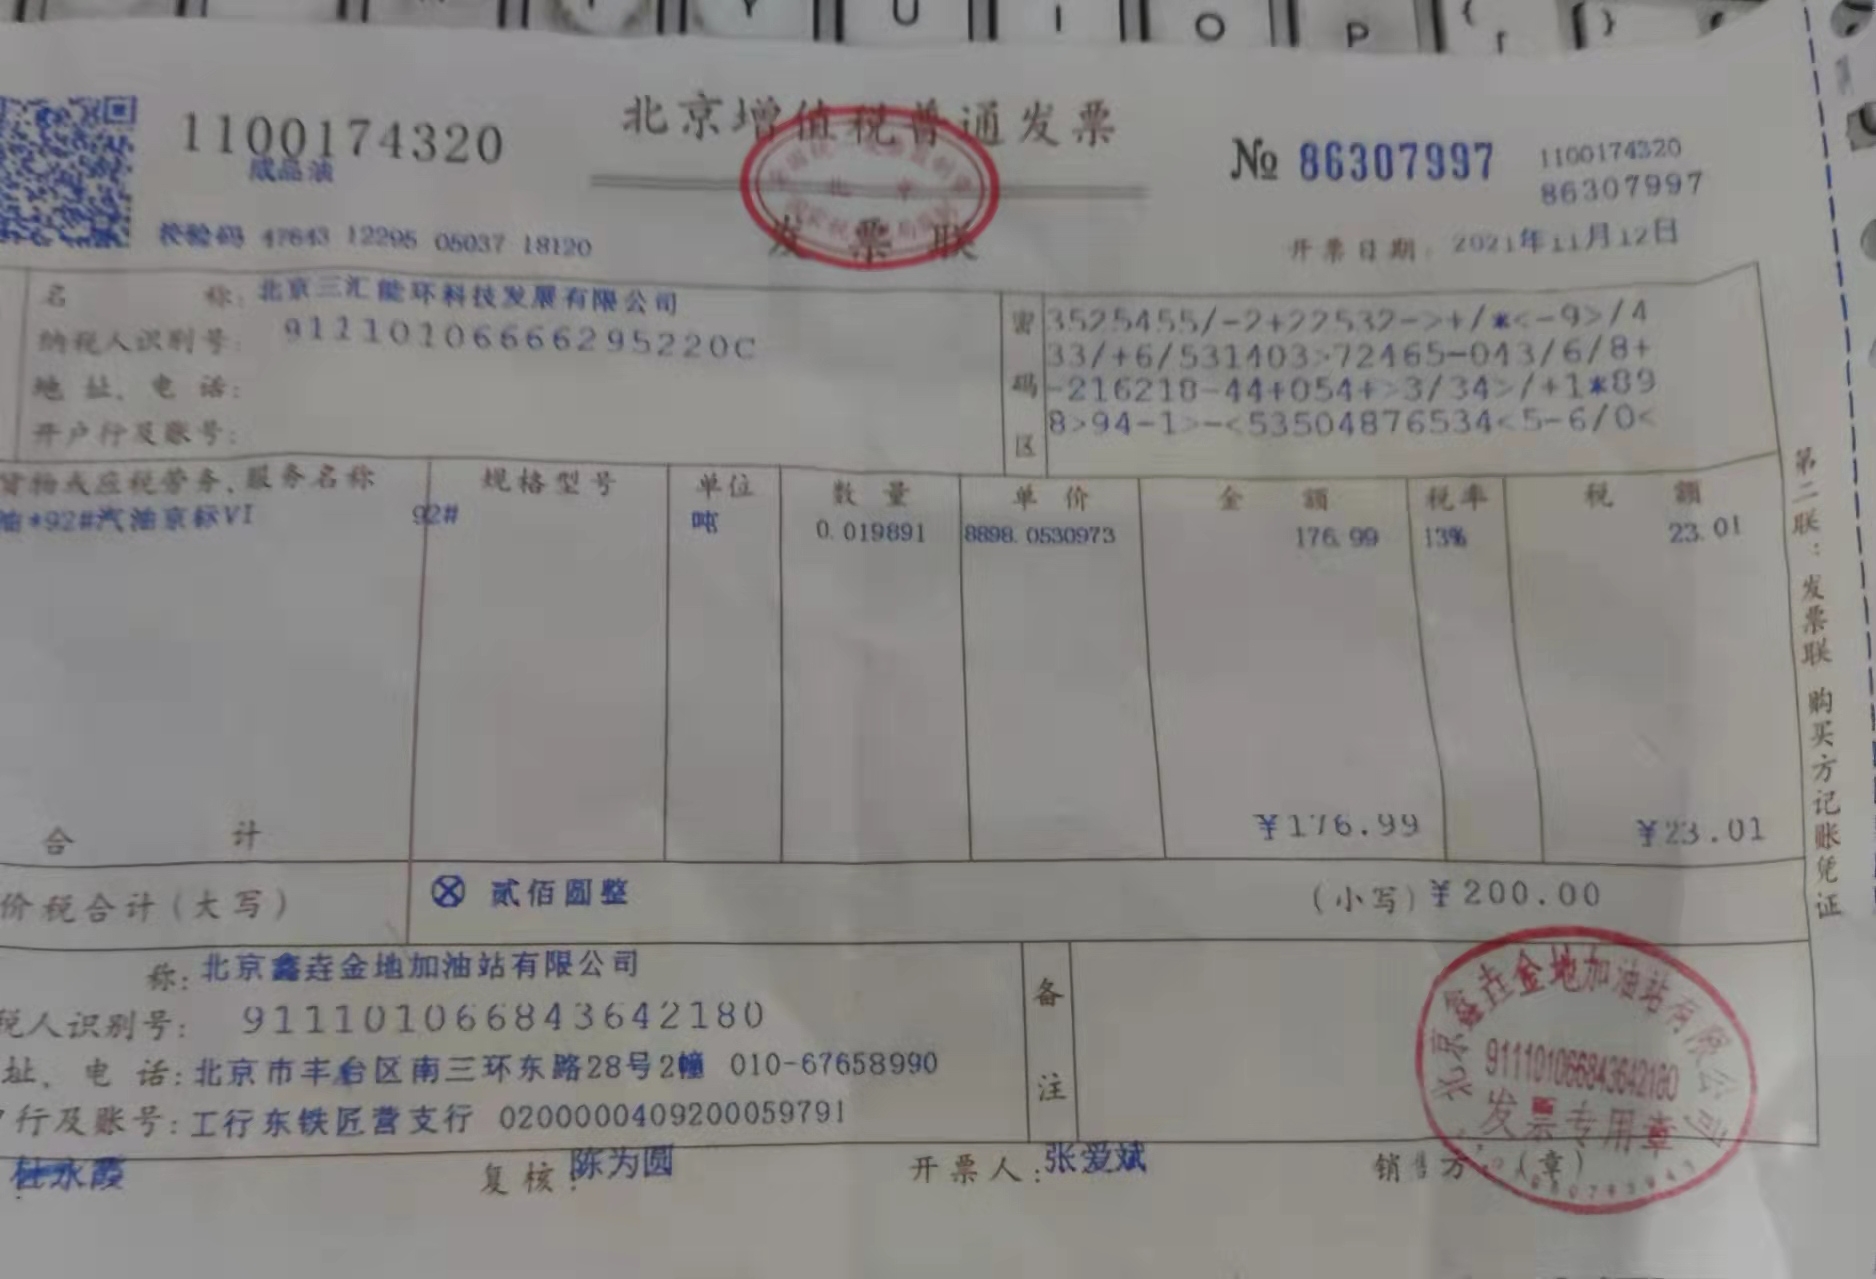 Y U I O P { [ }
北京增值税普通发票
1100174320
成品油
发票联
北京
№ 86307997
1100174320
86307997
校验码 47643 12295 05037 18120
开票日期: 2021年11月12日
名称: 北京三汇能环科技发展有限公司
纳税人识别号: 91110106666295220C
地址、电话:
开户行及账号:
密码区
3525455/-2+22532->+/*<-9>/4
33/+6/531403>72465-043/6/8+
-216218-44+054+>3/34>/+1*89
8>94-1>-<53504876534<5-6/0<
货物或应税劳务、服务名称 规格型号 单位 数量 单价 金额 税率 税额
油*92#汽油京标VI 92# 吨 0.019891 8898.0530973 176.99 13% 23.01
合计 ¥176.99 ¥23.01
价税合计(大写) ⊗ 贰佰圆整 (小写) ¥200.00
称: 北京鑫垚金地加油站有限公司
税人识别号: 911101066843642180
址、电话: 北京市丰台区南三环东路28号2幢 010-67658990
户行及账号: 工行东铁匠营支行 0200000409200059791
备注
杜永霞 复核: 陈为圆 开票人: 张爱斌 销售方:(章)
北京鑫垚金地加油站有限公司
911101066843642180
发票专用章
第二联:发票联 购买方记账凭证